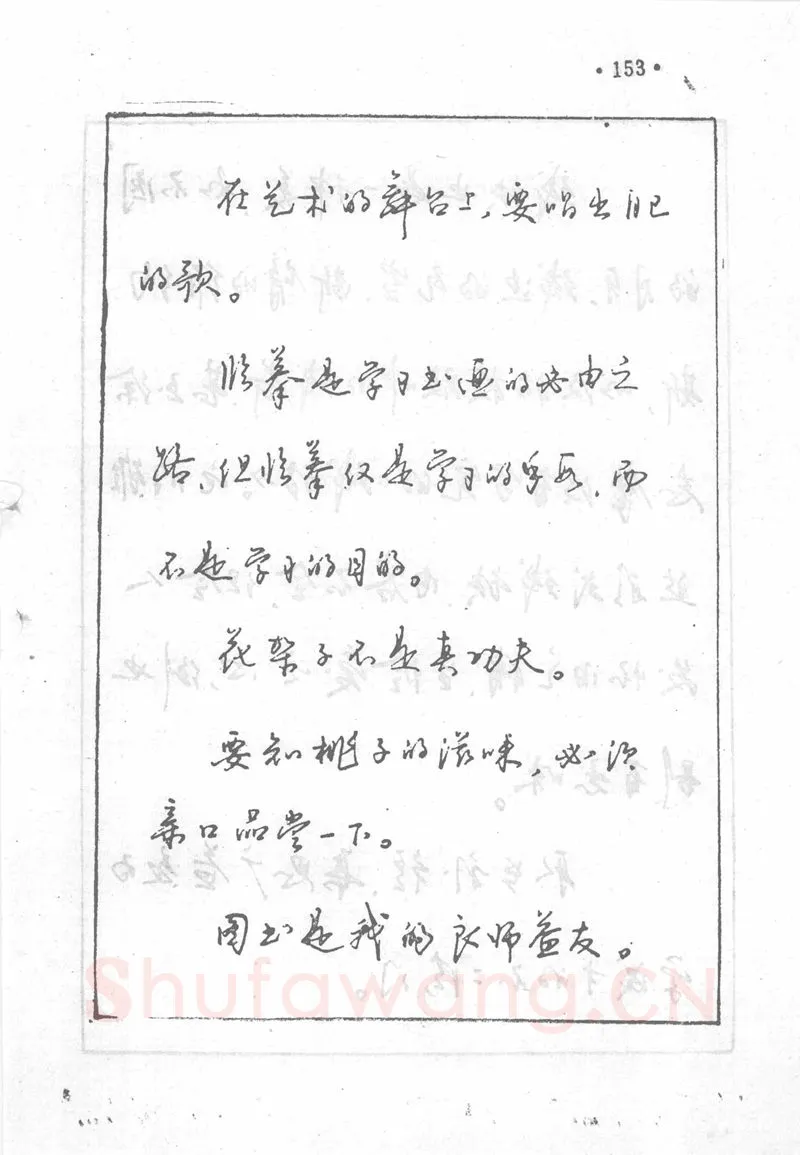 ·153·
在艺术的舞台上，要唱出自己
的歌。
临摹是学习书画的必由之
路，但临摹仅是学习的手段，而
不是学习的目的。
花架子不是真功夫。
要知桃子的滋味，必须
亲口品尝一下。
图书是我的良师益友。
Shufawang.CN